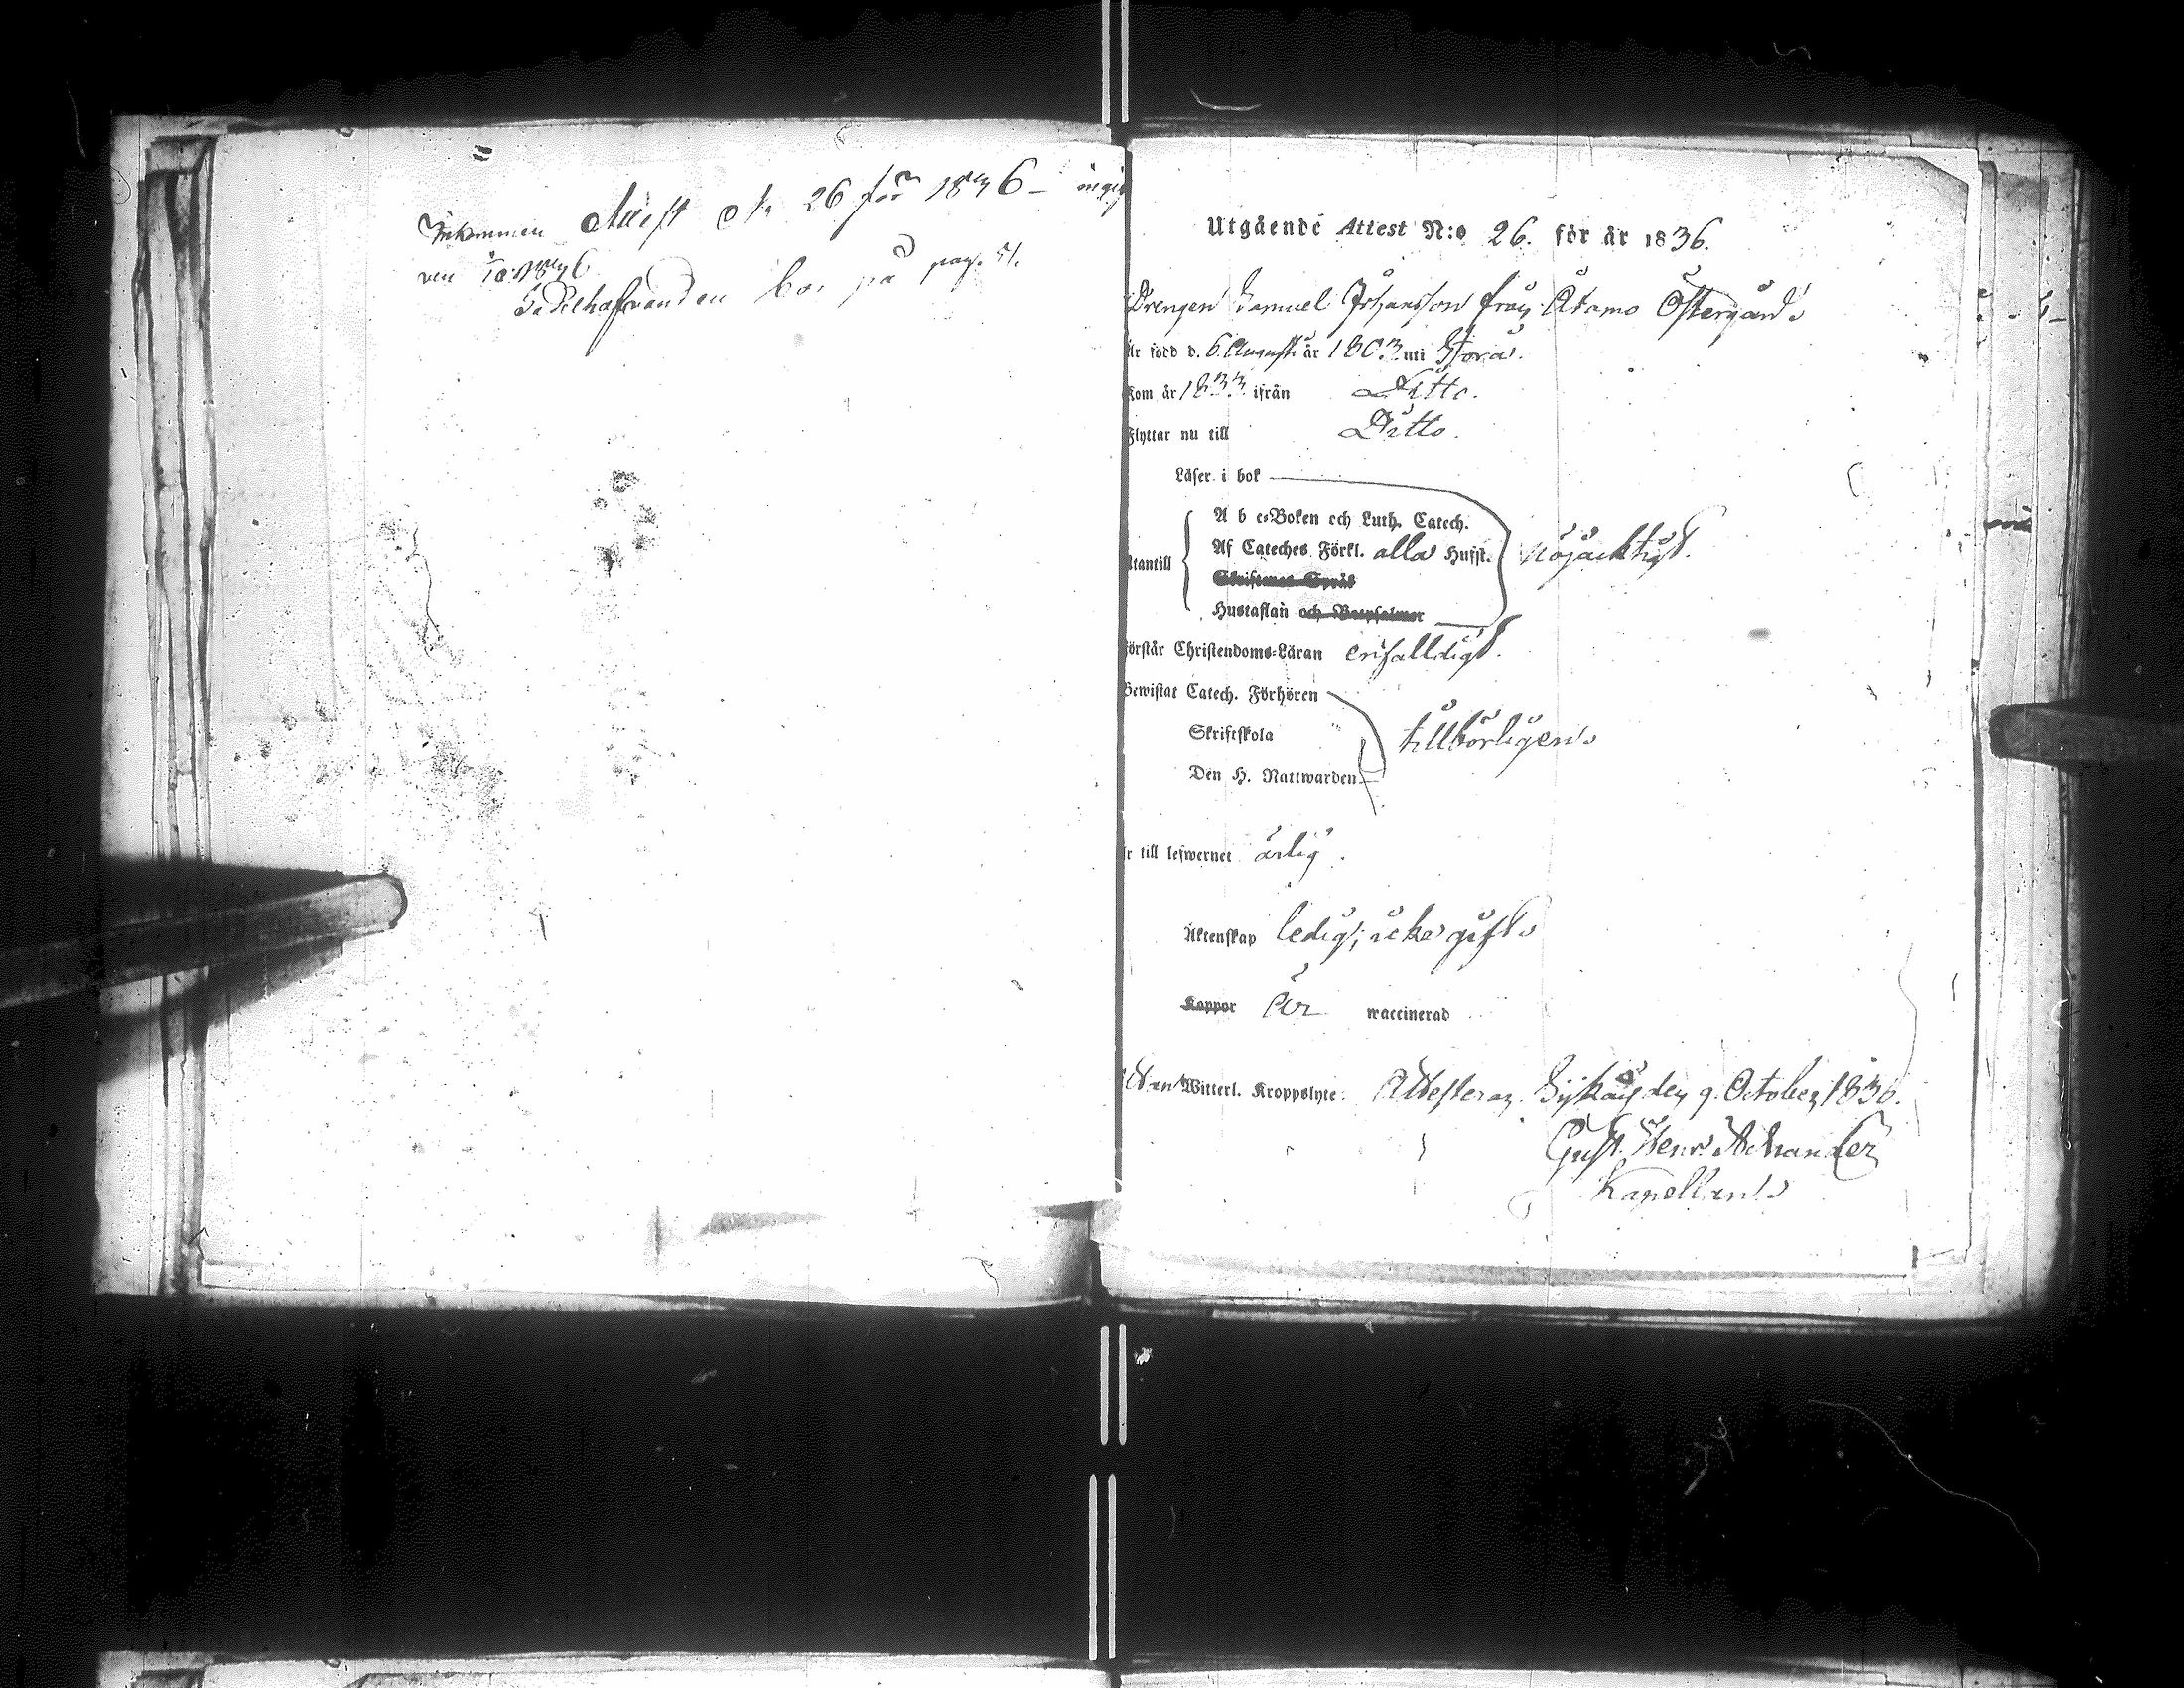 Inkommen Attest N. 26 för 1836 –
Innehafvanden bor på pag. 51.
Utgående Attest N:o 26. för år 1836.
Drengen Samuel Johansson från Åtamo Östergård
Är född d. 6. Augusti år 1803 uti Storå.
Kom år 1833 ifrån Ditto.
Flyttar nu till Ditto.
Läser i bok
A b c-Boken och Luth. Catech.
Af Cateches Förkl. alla Hufst. nöjacktigt.
Utantill
Skriftenes Språk
Hustaflan och Botpsalmer
Förstår Christendoms-Läran enfalldigt.
Bewistat Catech. Förhören
Skriftskola tillbörligen
Den H. Nattwarden
Är till lefwernet ärlig.
Äktenskap ledig; icke gift
Koppor Är waccinerad
Utan Witterl. Kroppslyte. Attesterar den 9. October 1836.
Gust. Henr.
Kapellan